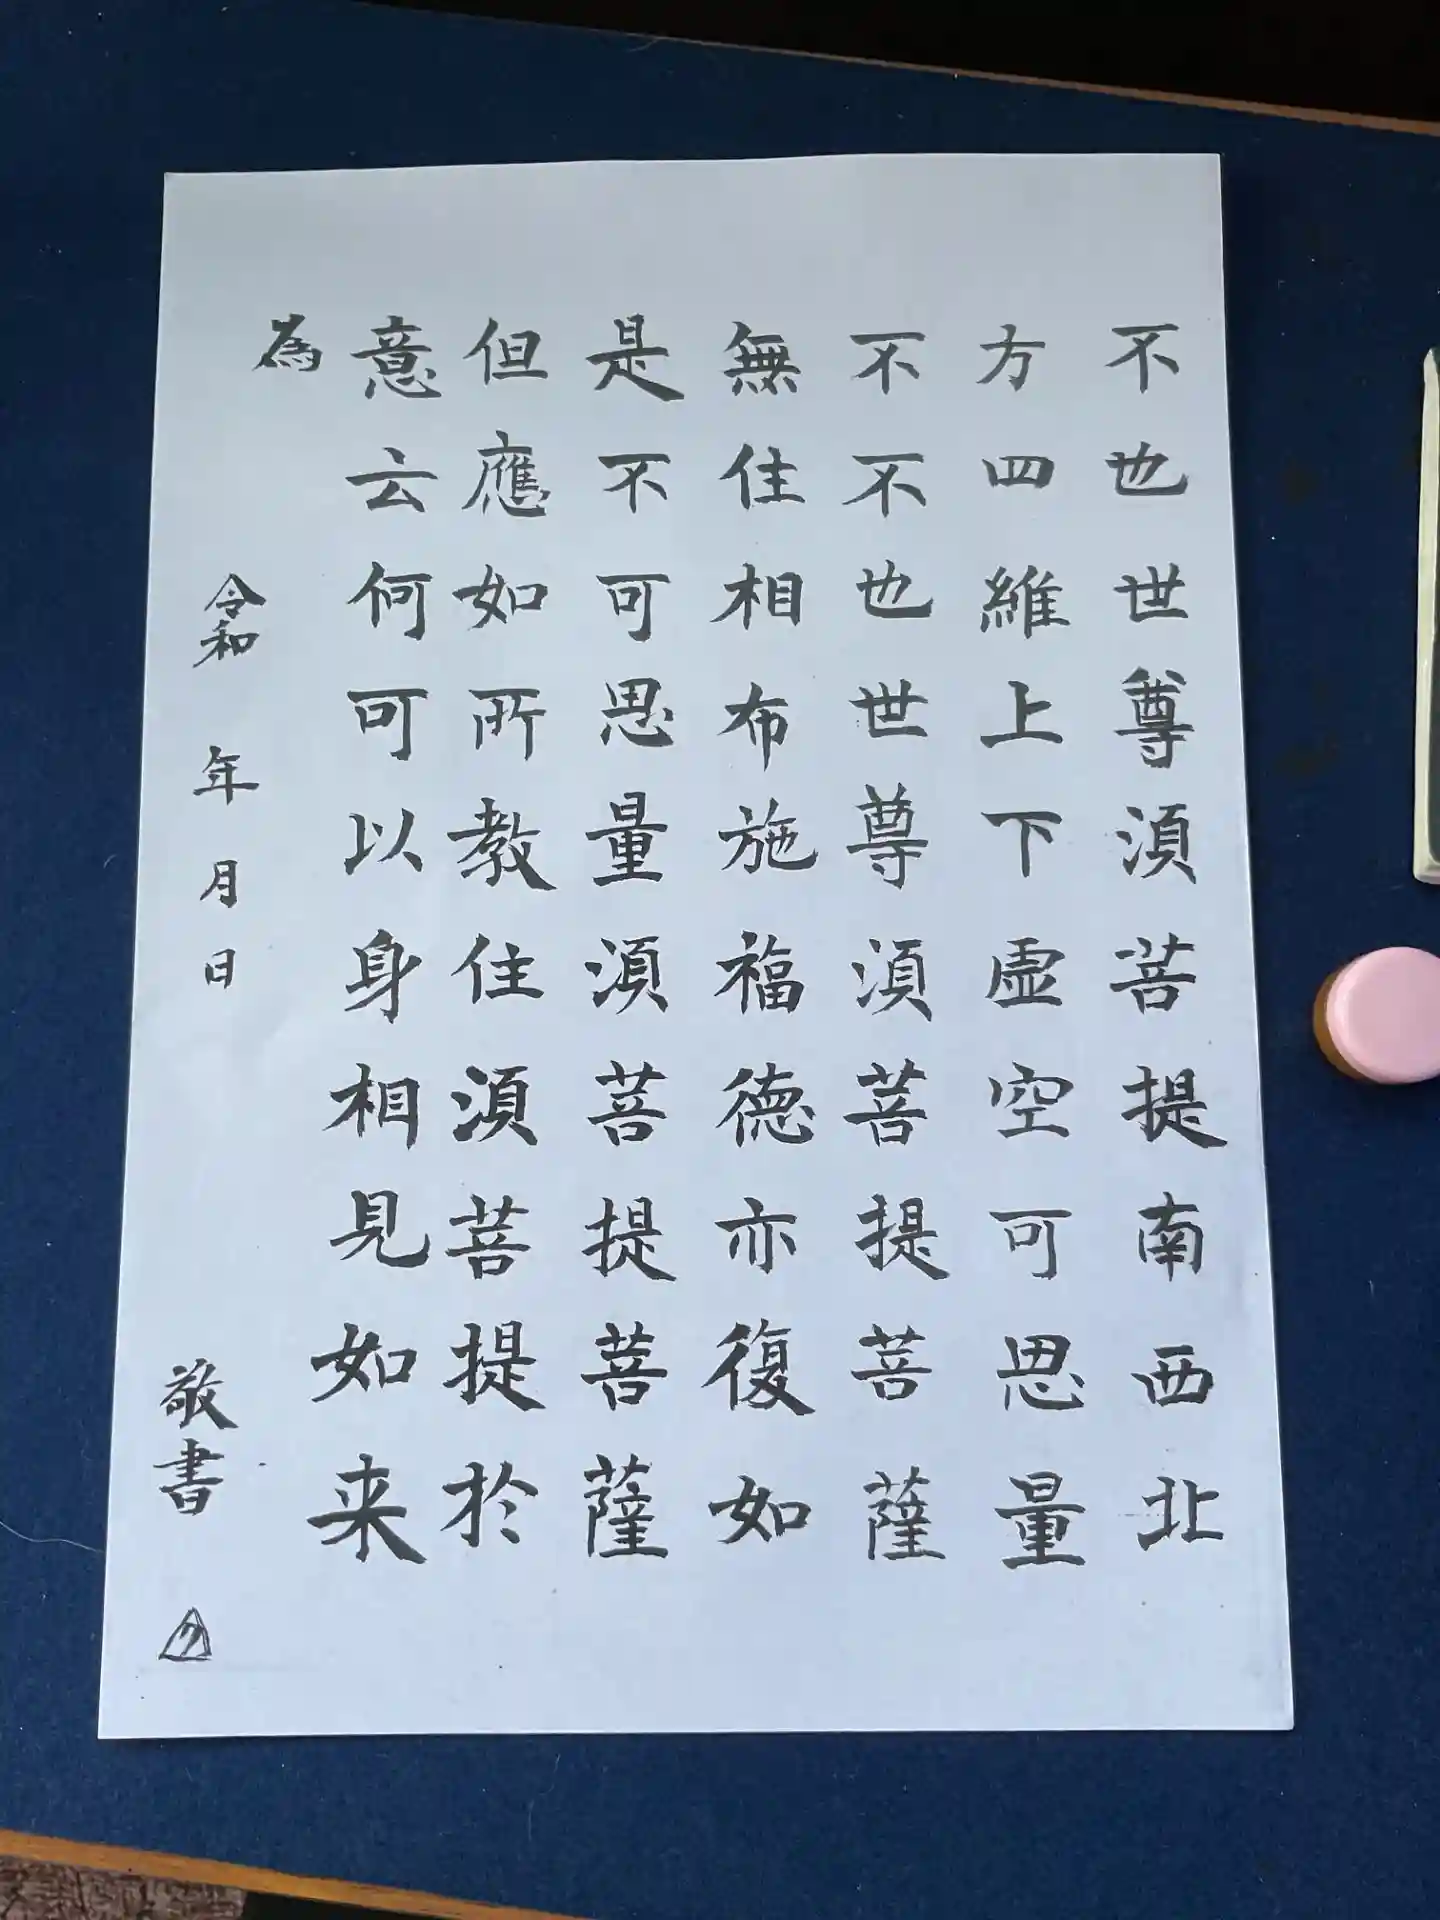 不也世尊須菩提南西北
方四維上下虚空可思量
不不也世尊須菩提菩薩
無住相布施福德亦復如
是不可思量須菩提菩薩
但應如所教住須菩提於
意云何可以身相見如来
為
令和 年 月 日
敬書